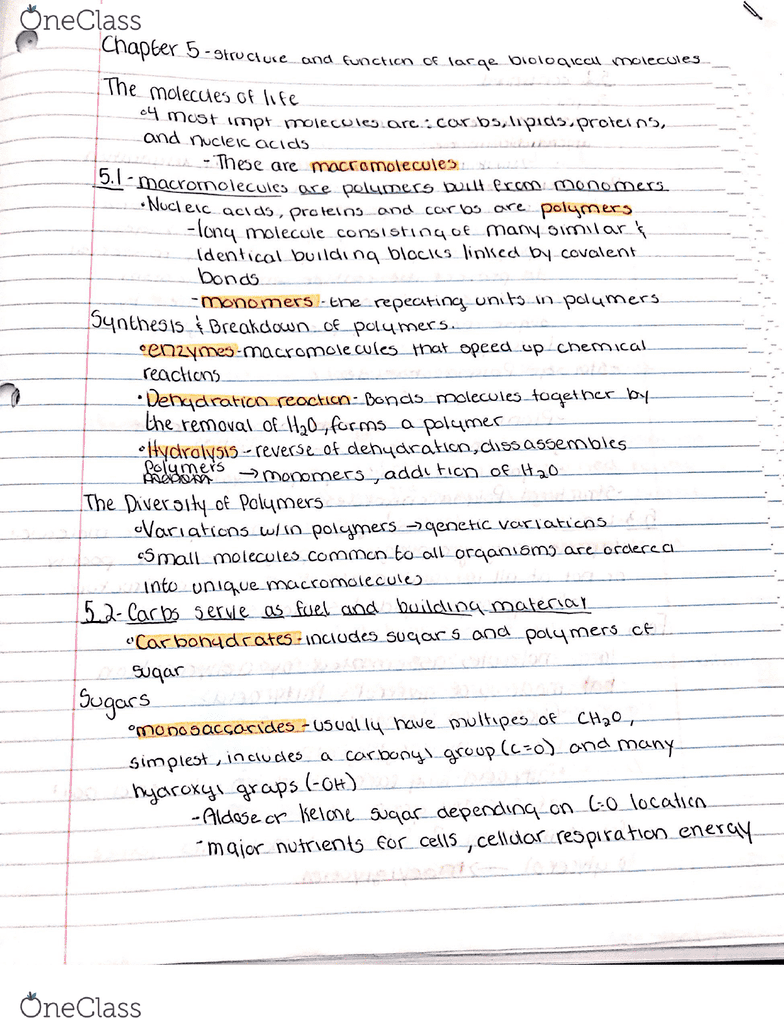 OneClass
Chapter 5 - structure and function of large biological molecules
The molecules of life
•4 most impt molecules are: carbs, lipids, proteins,
and nucleic acids
- These are macromolecules
5.1 - macromolecules are polymers built from monomers
•Nucleic acids, proteins and carbs are polymers
-long molecule consisting of many similar &
identical building blocks linked by covalent
bonds
-monomers - the repeating units in polymers
Synthesis & Breakdown of polymers.
•enzymes-macromolecules that speed up chemical
reactions
•Dehydration reaction - Bonds molecules together by
the removal of H₂O, forms a polymer
•Hydrolysis - reverse of dehydration, dissassembles
Polymers → monomers, addition of H₂O
The Diversity of Polymers
•Variations w/in polymers → genetic variations
•Small molecules common to all organisms are ordered
into unique macromolecules
5.2 - Carbs serve as fuel and building material
•Carbohydrates - includes sugars and polymers of
sugar
Sugars
•monosaccarides - usually have multipes of CH₂O,
simplest, includes a carbonyl group (C=O) and many
hydroxyl graps (-OH)
-Aldose or Ketone sugar depending on C=O location
-major nutrients for cells, cellular respiration energy
OneClass